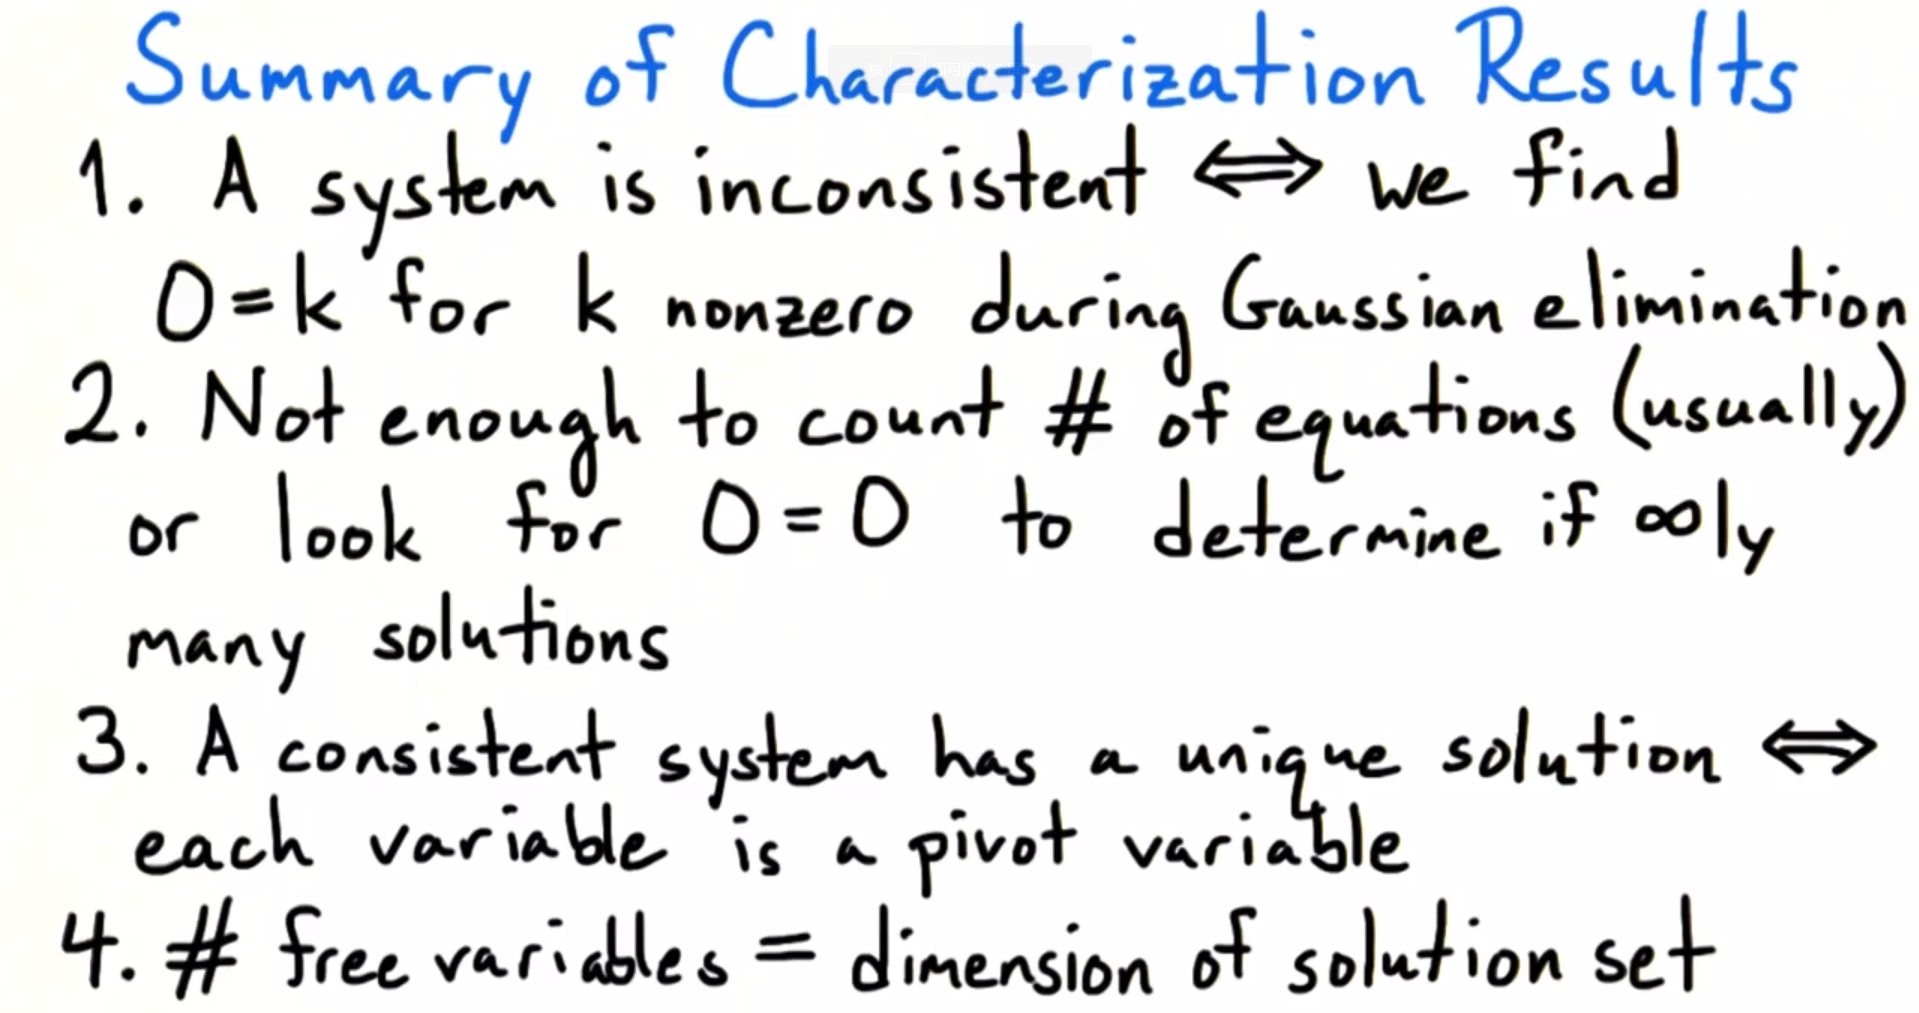 Summary of Characterization Results
1. A system is inconsistent ⟺ we find
0=k for k nonzero during Gaussian elimination
2. Not enough to count # of equations (usually)
or look for 0=0 to determine if ∞ly
many solutions
3. A consistent system has a unique solution ⟺
each variable is a pivot variable
4. # free variables = dimension of solution set